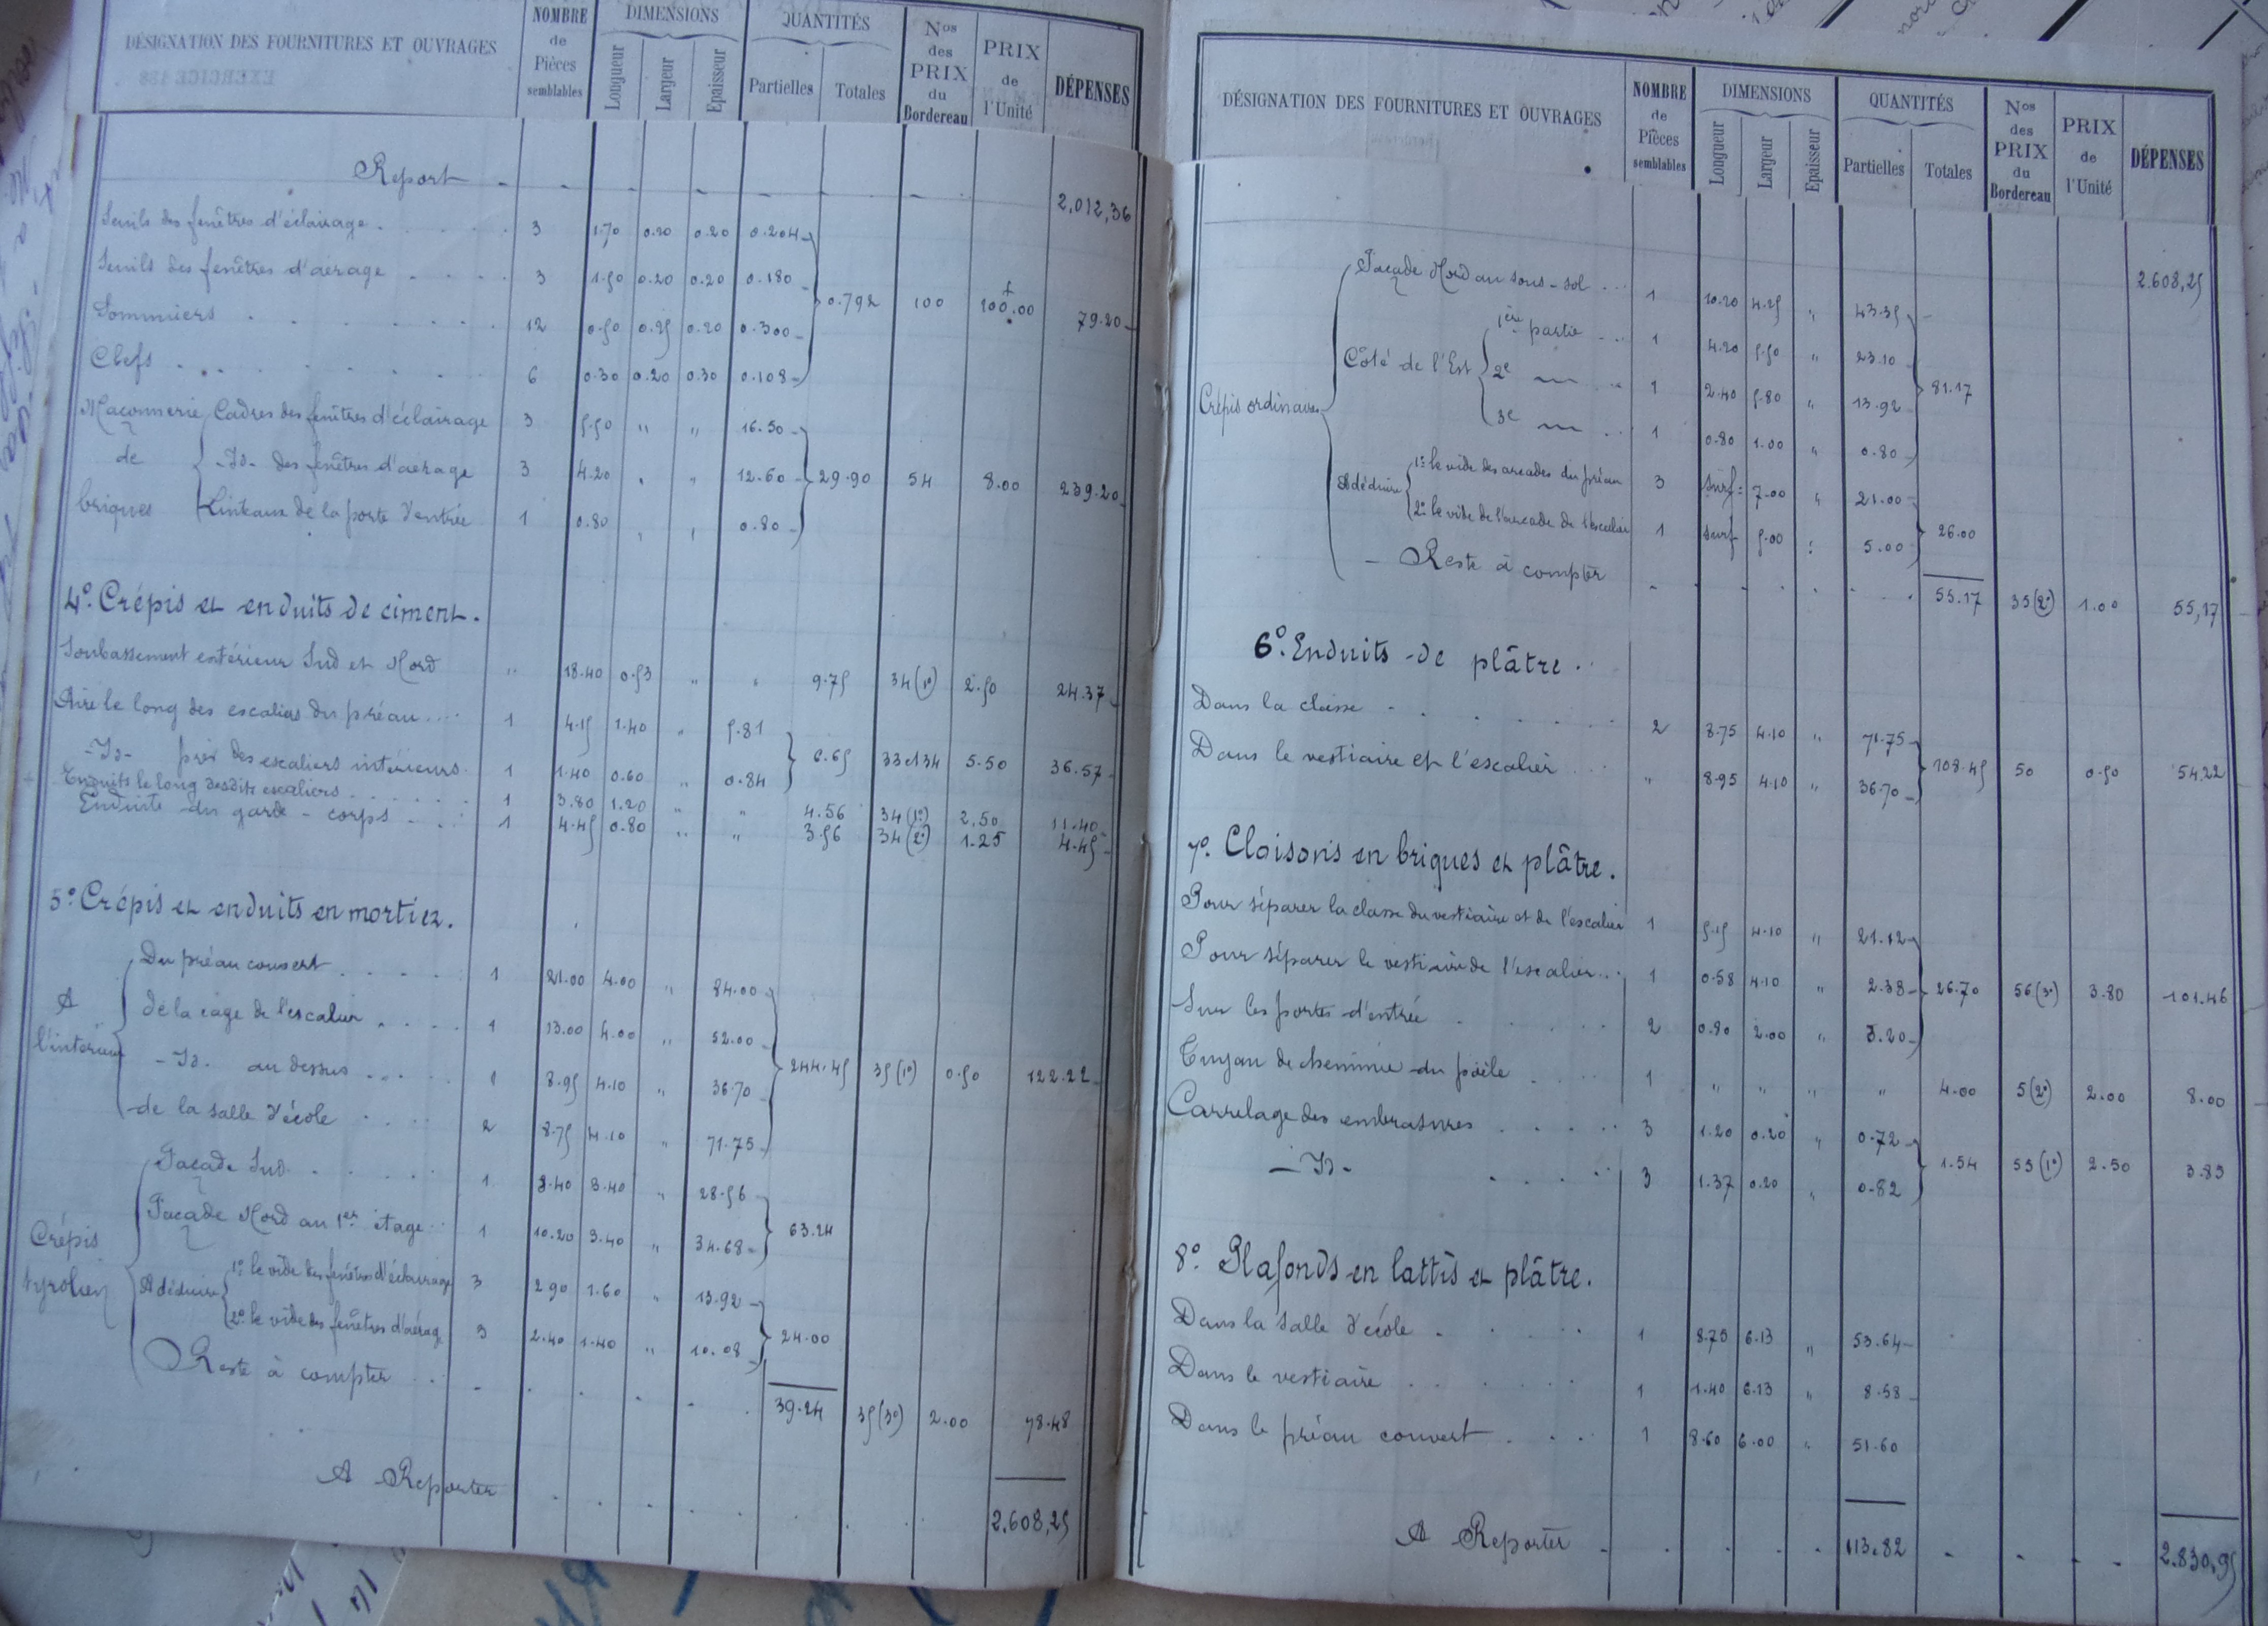 DÉSIGNATION DES FOURNITURES ET OUVRAGES NOMBRE de Pièces semblables DIMENSIONS Longueur Largeur Epaisseur QUANTITÉS Partielles Totales Nos des PRIX du Bordereau PRIX de l'Unité DÉPENSES
Report 2,012,36
Seuils des fenêtres d'éclairage 3 1.70 0.20 0.20 0.204
Seuils des fenêtres d'aérage 3 1.50 0.20 0.20 0.180
0.792 100 100.00 79.20
Sommiers 12 0.50 0.25 0.20 0.300
Clefs 6 0.30 0.20 0.30 0.108
Maçonnerie de briques
Cadres des fenêtres d'éclairage 3 5.50 " " 16.50
-Id- des fenêtres d'aérage 3 4.20 " " 12.60 29.90 54 8.00 239.20
Linteaux de la porte d'entrée 1 0.80 " " 0.80
4º. Crépis et enduits de ciment.
Soubassement extérieur Sud et Nord " 18.40 0.53 " " 9.75 34(1º) 2.50 24.37
Aire le long des escaliers du préau 1 4.15 1.40 " 5.81
6.65 33et34 5.50 36.57
-Id- près des escaliers intérieurs 1 1.40 0.60 " 0.84
Enduits le long desdits escaliers 1 3.80 1.20 " " 4.56 34(1º) 2.50 11.40
Enduits du garde-corps 1 4.45 0.80 " " 3.56 34(2º) 1.25 4.45
5º. Crépis et enduits en mortier.
A l'intérieur
Du préau couvert 1 21.00 4.00 " 84.00
de la cage de l'escalier 1 13.00 4.00 " 52.00
244.45 35(1º) 0.50 122.22
-Id- au dessus 1 8.95 4.10 " 36.70
de la salle d'école 2 8.75 4.10 " 71.75
Crépis tyrolien
Façade Sud 1 8.40 3.40 " 28.56
63.24
Façade Nord au 1er étage 1 10.20 3.40 " 34.68
A déduire
1º. le vide des fenêtres d'éclairage 3 2.90 1.60 " 13.92
24.00
2º. le vide des fenêtres d'aérage 3 2.40 1.40 " 10.08
Reste à compter 39.24 35(3º) 2.00 78.48
A Reporter 2.608,25
DÉSIGNATION DES FOURNITURES ET OUVRAGES NOMBRE de Pièces semblables DIMENSIONS Longueur Largeur Epaisseur QUANTITÉS Partielles Totales Nos des PRIX du Bordereau PRIX de l'Unité DÉPENSES
2.608,25
Crépis ordinaires
Façade Nord au sous-sol 1 10.20 4.25 " 43.35
Côté de l'Est
1ère partie 1 4.20 5.50 " 23.10
81.17
2e 1 2.40 5.80 " 13.92
3e 1 0.80 1.00 " 0.80
A déduire
1º. le vide des arcades du préau 3 surf= 7.00 " 21.00
26.00
2º. le vide de l'arcade de l'escalier 1 surf 5.00 " 5.00
Reste à compter 55.17 35(2º) 1.00 55,17
6º. Enduits de plâtre.
Dans la classe 2 8.75 4.10 " 71.75
108.45 50 0.50 54.22
Dans le vestiaire et l'escalier " 8.95 4.10 " 36.70
7º. Cloisons en briques et plâtre.
Pour séparer la classe du vestiaire et de l'escalier 1 5.15 4.10 " 21.12
Pour séparer le vestiaire de l'escalier 1 0.58 4.10 " 2.38 26.70 56(3º) 3.80 101.46
Sur les portes d'entrée 2 0.80 2.00 " 3.20
Tuyau de cheminée du poële 1 " " " " 4.00 5(2º) 2.00 8.00
Carrelage des embrasures 3 1.20 0.20 " 0.72
1.54 53(1º) 2.50 3.85
-Id- 3 1.37 0.20 " 0.82
8º. Plafonds en lattis et plâtre.
Dans la salle d'école 1 8.75 6.13 " 53.64
Dans le vestiaire 1 1.40 6.13 " 8.58
Dans le préau couvert 1 8.60 6.00 " 51.60
A Reporter 113.82 2.830,95